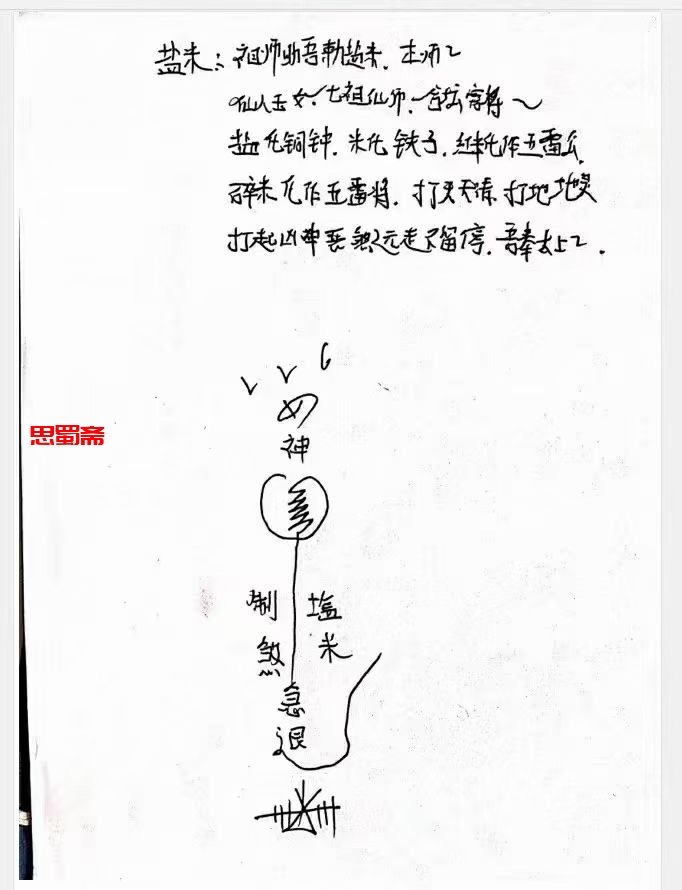 盐米：祖师助吾勅盐米，本师〻
仙人玉女，七祖仙师，
盐化铜钟，米化铁子，红米化作五雷公
碎米化作五雷将，打天天清，打地地灵
打起凶神恶煞速走不留停，吾奉太上〻.
神
思蜀斋
制 盐
煞 米
急
退